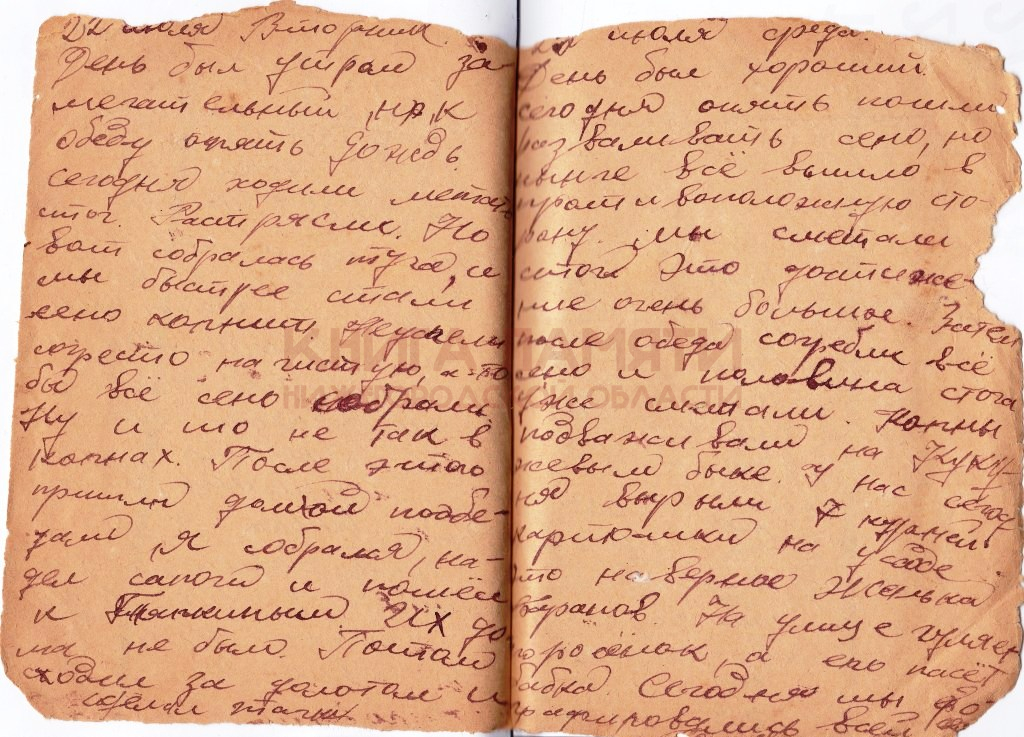 июля Вторник.
День был утром за-
мечательный, но к
обеду опять дождь.
Сегодня ходили метать
стог. Растрясли. Но
вот собралась туча, и
мы быстрее стали
сено копнить. Не успели
сгрести на чистую, а-то
бы всё сено собрали.
Ну и то не так в
копнах. После этого
пришли домой пообе-
дали, я собрался, на-
дел сапоги и пошёл
к Их до-
ма не было. Потом
сходил за долотом и
июля среда.
День был хороший.
Сегодня опять пошли
разваливать сено, но
нынче всё вышло в
противоположную сто-
рону. Мы сметали
стог. Это достиже-
ние очень большое. Затем
после обеда согребли всё
сено и половина стога
уже сметали. Копны
подваживали на
быке. У нас сегод-
ня вырыли 7
картошки на усаде.
Это наверное Женька
Баранов. На улице гуляет
поросёнок, а его пасёт
бабка. Сегодня мы фо-
тографировались всей
КНИГА ПАМЯТИ
НИЖЕГОРОДСКОЙ ОБЛАСТИ